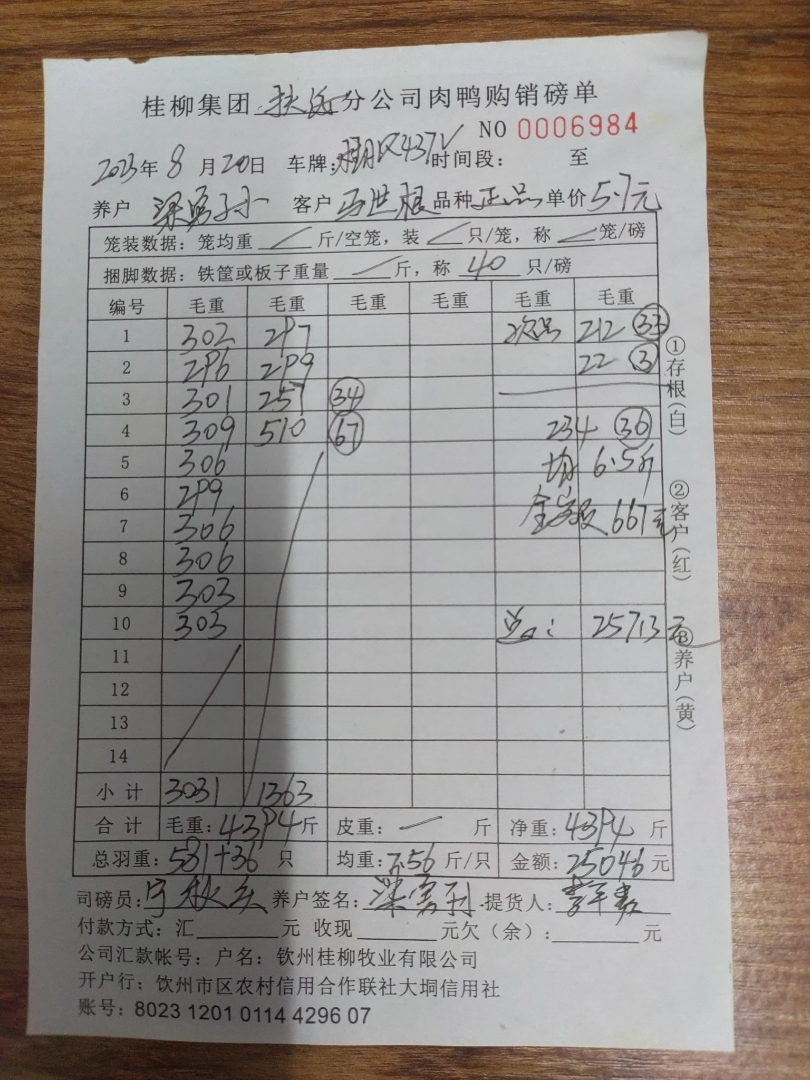 桂柳集团 分公司肉鸭购销磅单
NO 0006984
2023年 8 月 20日 车牌: 437V 时间段: 至
养户 客户 品种 正品 单价 5.7元
笼装数据: 笼均重 / 斤/空笼, 装 / 只/笼, 称 / 笼/磅
捆脚数据: 铁筐或板子重量 / 斤, 称 40 只/磅
编号 毛重 毛重 毛重 毛重 毛重 毛重
1 302 297 次品 212 33
2 296 299 22 3
3 301 257 34
4 309 510 67 234 36
5 306 均 6.5斤
6 299
7 306 金额 667元
8 306
9 303
10 303 总: 25713元
11
12
13
14
小计 3031 1363
合计 毛重: 4394斤 皮重: — 斤 净重: 4394 斤
总羽重: 581+36 只 均重: 7.56 斤/只 金额: 25046 元
司磅员: 养户签名: 提货人:
付款方式: 汇 元 收现 元欠(余): 元
公司汇款帐号: 户名: 钦州桂柳牧业有限公司
开户行: 钦州市区农村信用合作联社大垌信用社
账号: 8023 1201 0114 4296 07
①存根(白)
②客户(红)
③养户(黄)